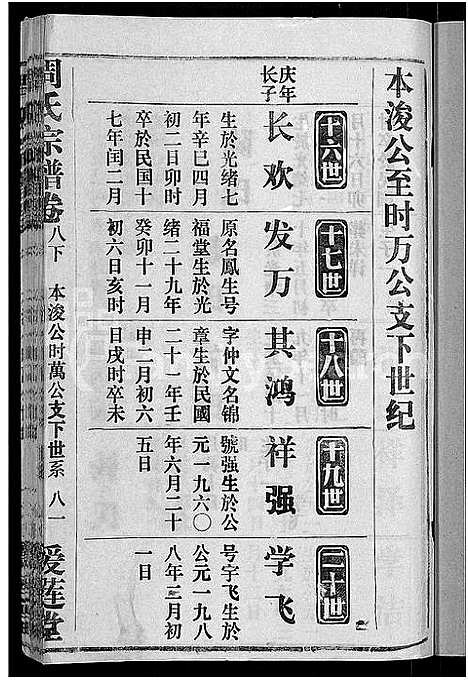 本浚公至时万公支下世纪
十六世
庆年
长子
长欢
生於光绪七
年辛巳四月
初二日卯时
卒於民国十
七年闰二月
十七世
发万
原名鳳生号
福堂生於光
绪二十九年
癸卯十一月
初六日亥时
十八世
其鸿
字仲文名锦
章生於民國
二十一年壬
申二月初六
日戌时卒未
十九世
祥强
號强生於公
元一九六〇
年六月二十
五日
二十世
学飞
号宇飞生於
公元一九八
八年三月初
一日
周氏宗谱卷
八下
本浚公时萬公支下世系
八一
爱莲堂